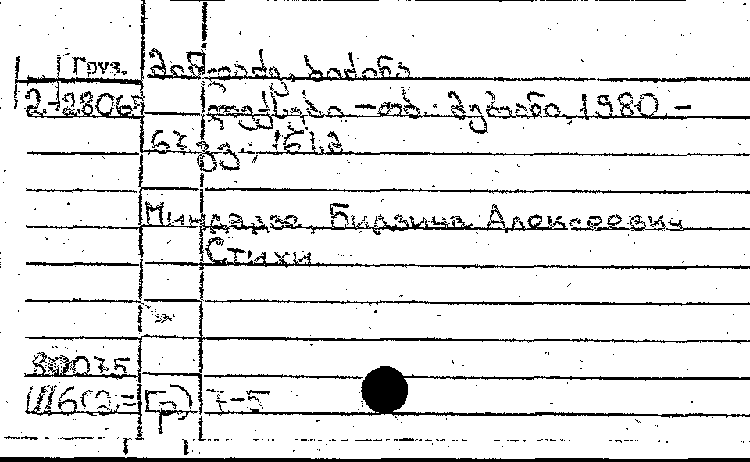 Груз. მინდაძე, ბიძინა
2-28067 ლექსები. – თბ.: მერანი, 1980. –
67 გვ.; 16 სმ
Миндадзе, Бидзина Алексеевич
Стихи.
80075
Ш6(2=Гр) 7-5